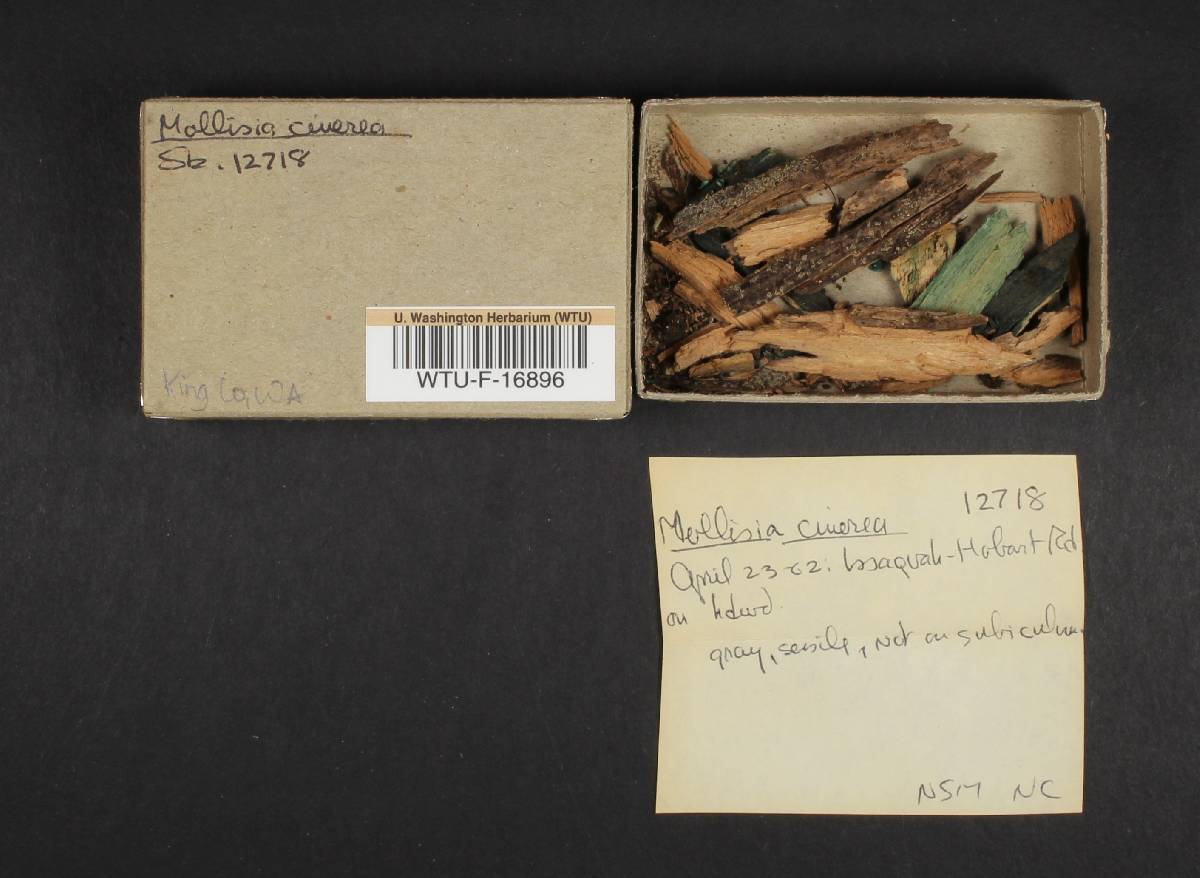 Mollisia cinerea
Stz. 12718
U. Washington Herbarium (WTU)
WTU-F-16896
King Co, WA
12718
Mollisia cinerea
April 23-62: Issaquah-Hobart Rd
on hdwd.
gray, sessile, not on subiculum.
NSM NC